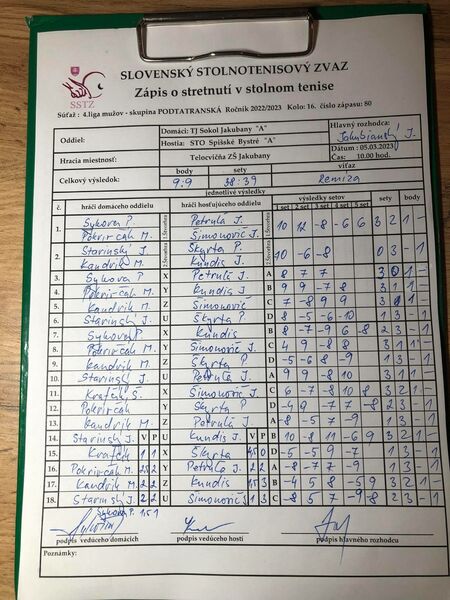 SSTZ
SLOVENSKÝ STOLNOTENISOVÝ ZVAZ
Zápis o stretnutí v stolnom tenise
Súťaž : 4.liga mužov - skupina PODTATRANSKÁ Ročník 2022/2023 Kolo: 16. číslo zápasu: 80
Oddiel: Domáci: TJ Sokol Jakubany "A" Hlavný rozhodca:
Hostia: STO Spišské Bystré "A" Jakubianský J.
Hracia miestnosť: Telocvičňa ZŠ Jakubany Dátum : 05.03.2023
Čas: 10.00 hod.
body sety víťaz
Celkový výsledok: 9:9 38:39 Remíza
jednotlivé výsledky
č. hráči domáceho oddielu hráči hosťujúceho oddielu výsledky setov sety body
1 set 2 set 3 set 4 set 5 set
1. Sykora P. Petrula J. 10 12 -8 -6 6 3 2 1 -
Pokrirčák M. Šimonovič J.
2. Starinský J. Skyrta P. 10 -6 -8 0 3 - 1
Kandrik M. Kundis J.
3. Sykora P. X Petrula J. A 8 7 7 3 0 1 -
4. Pokrirčák M. Y Kundis J. B 9 9 -7 8 3 1 1 -
5. Kandrik M. Z Šimonovič C 7 -8 9 9 3 1 -
6. Starinský J. U Skyrta P. D -8 5 -6 -10 1 3 - 1
7. Sykora P. X Kundis B 8 -7 -9 6 -8 2 3 - 1
8. Pokrirčák M. Y Šimonovič J. C 4 9 -8 8 3 1 1 -
9. Kandrik M. Z Skyrta P. D -5 -6 8 -9 1 3 - 1
10. Starinský J. U Petrula J. A 9 9 -8 10 3 1 1 -
11. X Šimonovič J. C 6 -7 -8 10 8 3 2 1 -
12. Pokrirčák Y Skyrta P. D -4 9 -7 7 -8 2 3 - 1
13. Kandrik M. Z Petrula J. A -8 -5 7 -9 1 3 - 1
14. Starinský J. V P U Kundis J. V P B 10 -8 11 -6 9 3 2 1 -
15. 1 1 X Skyrta 4 0 D -5 -5 9 -7 1 3 - 1
16. Pokrirčák M. 2 2 Y Petrula J. 2 2 A -8 -7 7 -9 1 3 - 1
17. Kandrik M. 2 2 Z Kundis 1 3 B -4 5 8 -5 9 3 2 1 -
18. Starinský J. 2 2 U Šimonovič 1 3 C -8 5 7 -9 -8 2 3 - 1
Sykora P.
podpis vedúceho domácich podpis vedúceho hostí podpis hlavného rozhodcu
Poznámky: